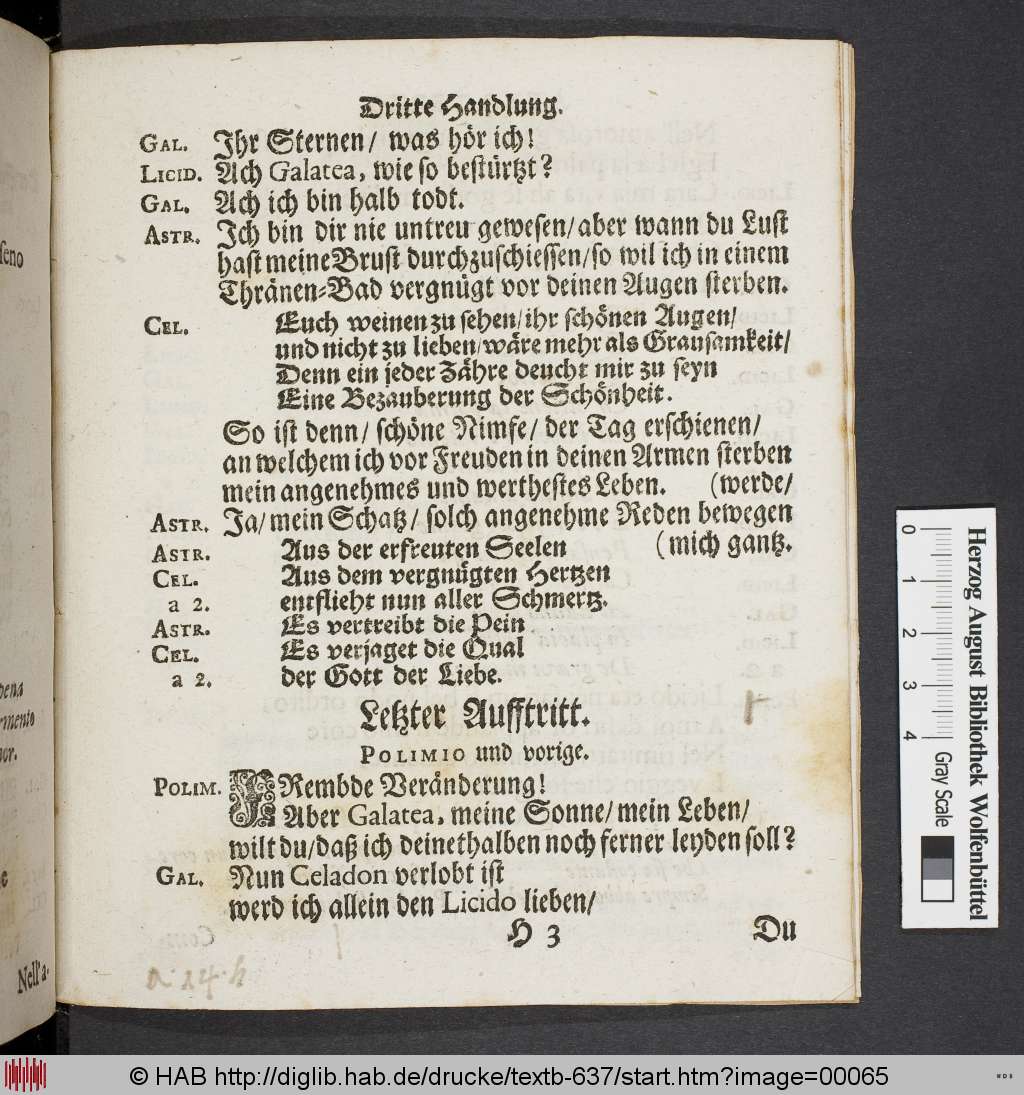 Dritte Handlung.
GAL. Ihr Sternen/ was hör ich!
LICID. Ach Galatea, wie so bestürtzt?
GAL. Ach ich bin halb todt.
ASTR. Ich bin dir nie untreu gewesen/ aber wann du Lust
hast meine Brust durchzuschiessen/ so wil ich in einem
Thränen-Bad vergnügt vor deinen Augen sterben.
CEL. Euch weinen zu sehen/ ihr schönen Augen/
und nicht zu lieben/ wäre mehr als Grausamkeit/
Denn ein jeder Zähre deucht mir zu seyn
Eine Bezauberung der Schönheit.
So ist denn/ schöne Nimfe/ der Tag erschienen/
an welchem ich vor Freuden in deinen Armen sterben
mein angenehmes und werthestes Leben. (werde/
ASTR. Ja/ mein Schatz/ solch angenehme Reden bewegen
ASTR. Aus der erfreuten Seelen (mich gantz.
CEL. Aus dem vergnügten Hertzen
a 2. entflieht nun aller Schmertz.
ASTR. Es vertreibt die Pein
CEL. Es verjaget die Qual
a 2. der Gott der Liebe.
Letzter Aufftritt.
POLIMIO und vorige.
POLIM. FRembde Veränderung!
Aber Galatea, meine Sonne/ mein Leben/
wilt du/ daß ich deinethalben noch ferner leyden soll?
GAL. Nun Celadon verlobt ist
werd ich allein den Licido lieben/
H 3 Du
Nell'a-
Herzog August Bibliothek Wolfenbüttel
0 1 2 3 4 Gray Scale
© HAB http://diglib.hab.de/drucke/textb-637/start.htm?image=00065